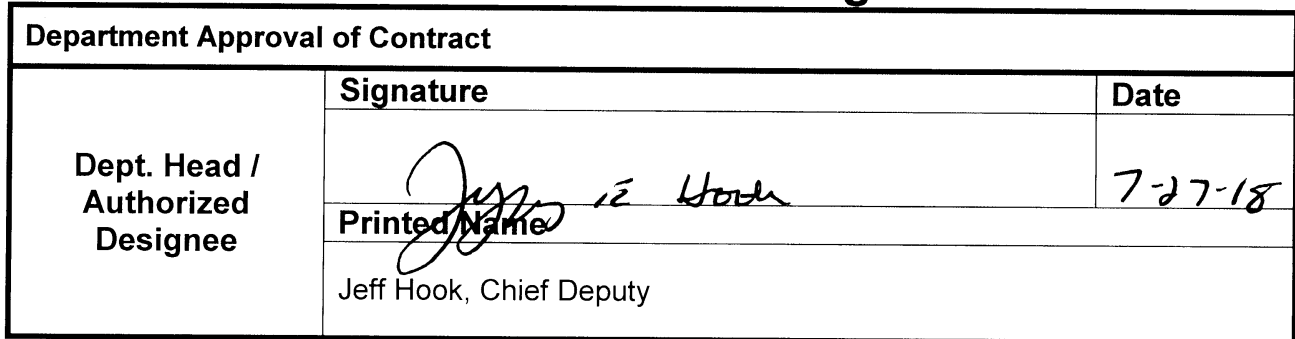 Department Approval of Contract
Signature
Date
Dept. Head /
Authorized
Designee
E Hook
7-27-18
Printed Name
Jeff Hook, Chief Deputy